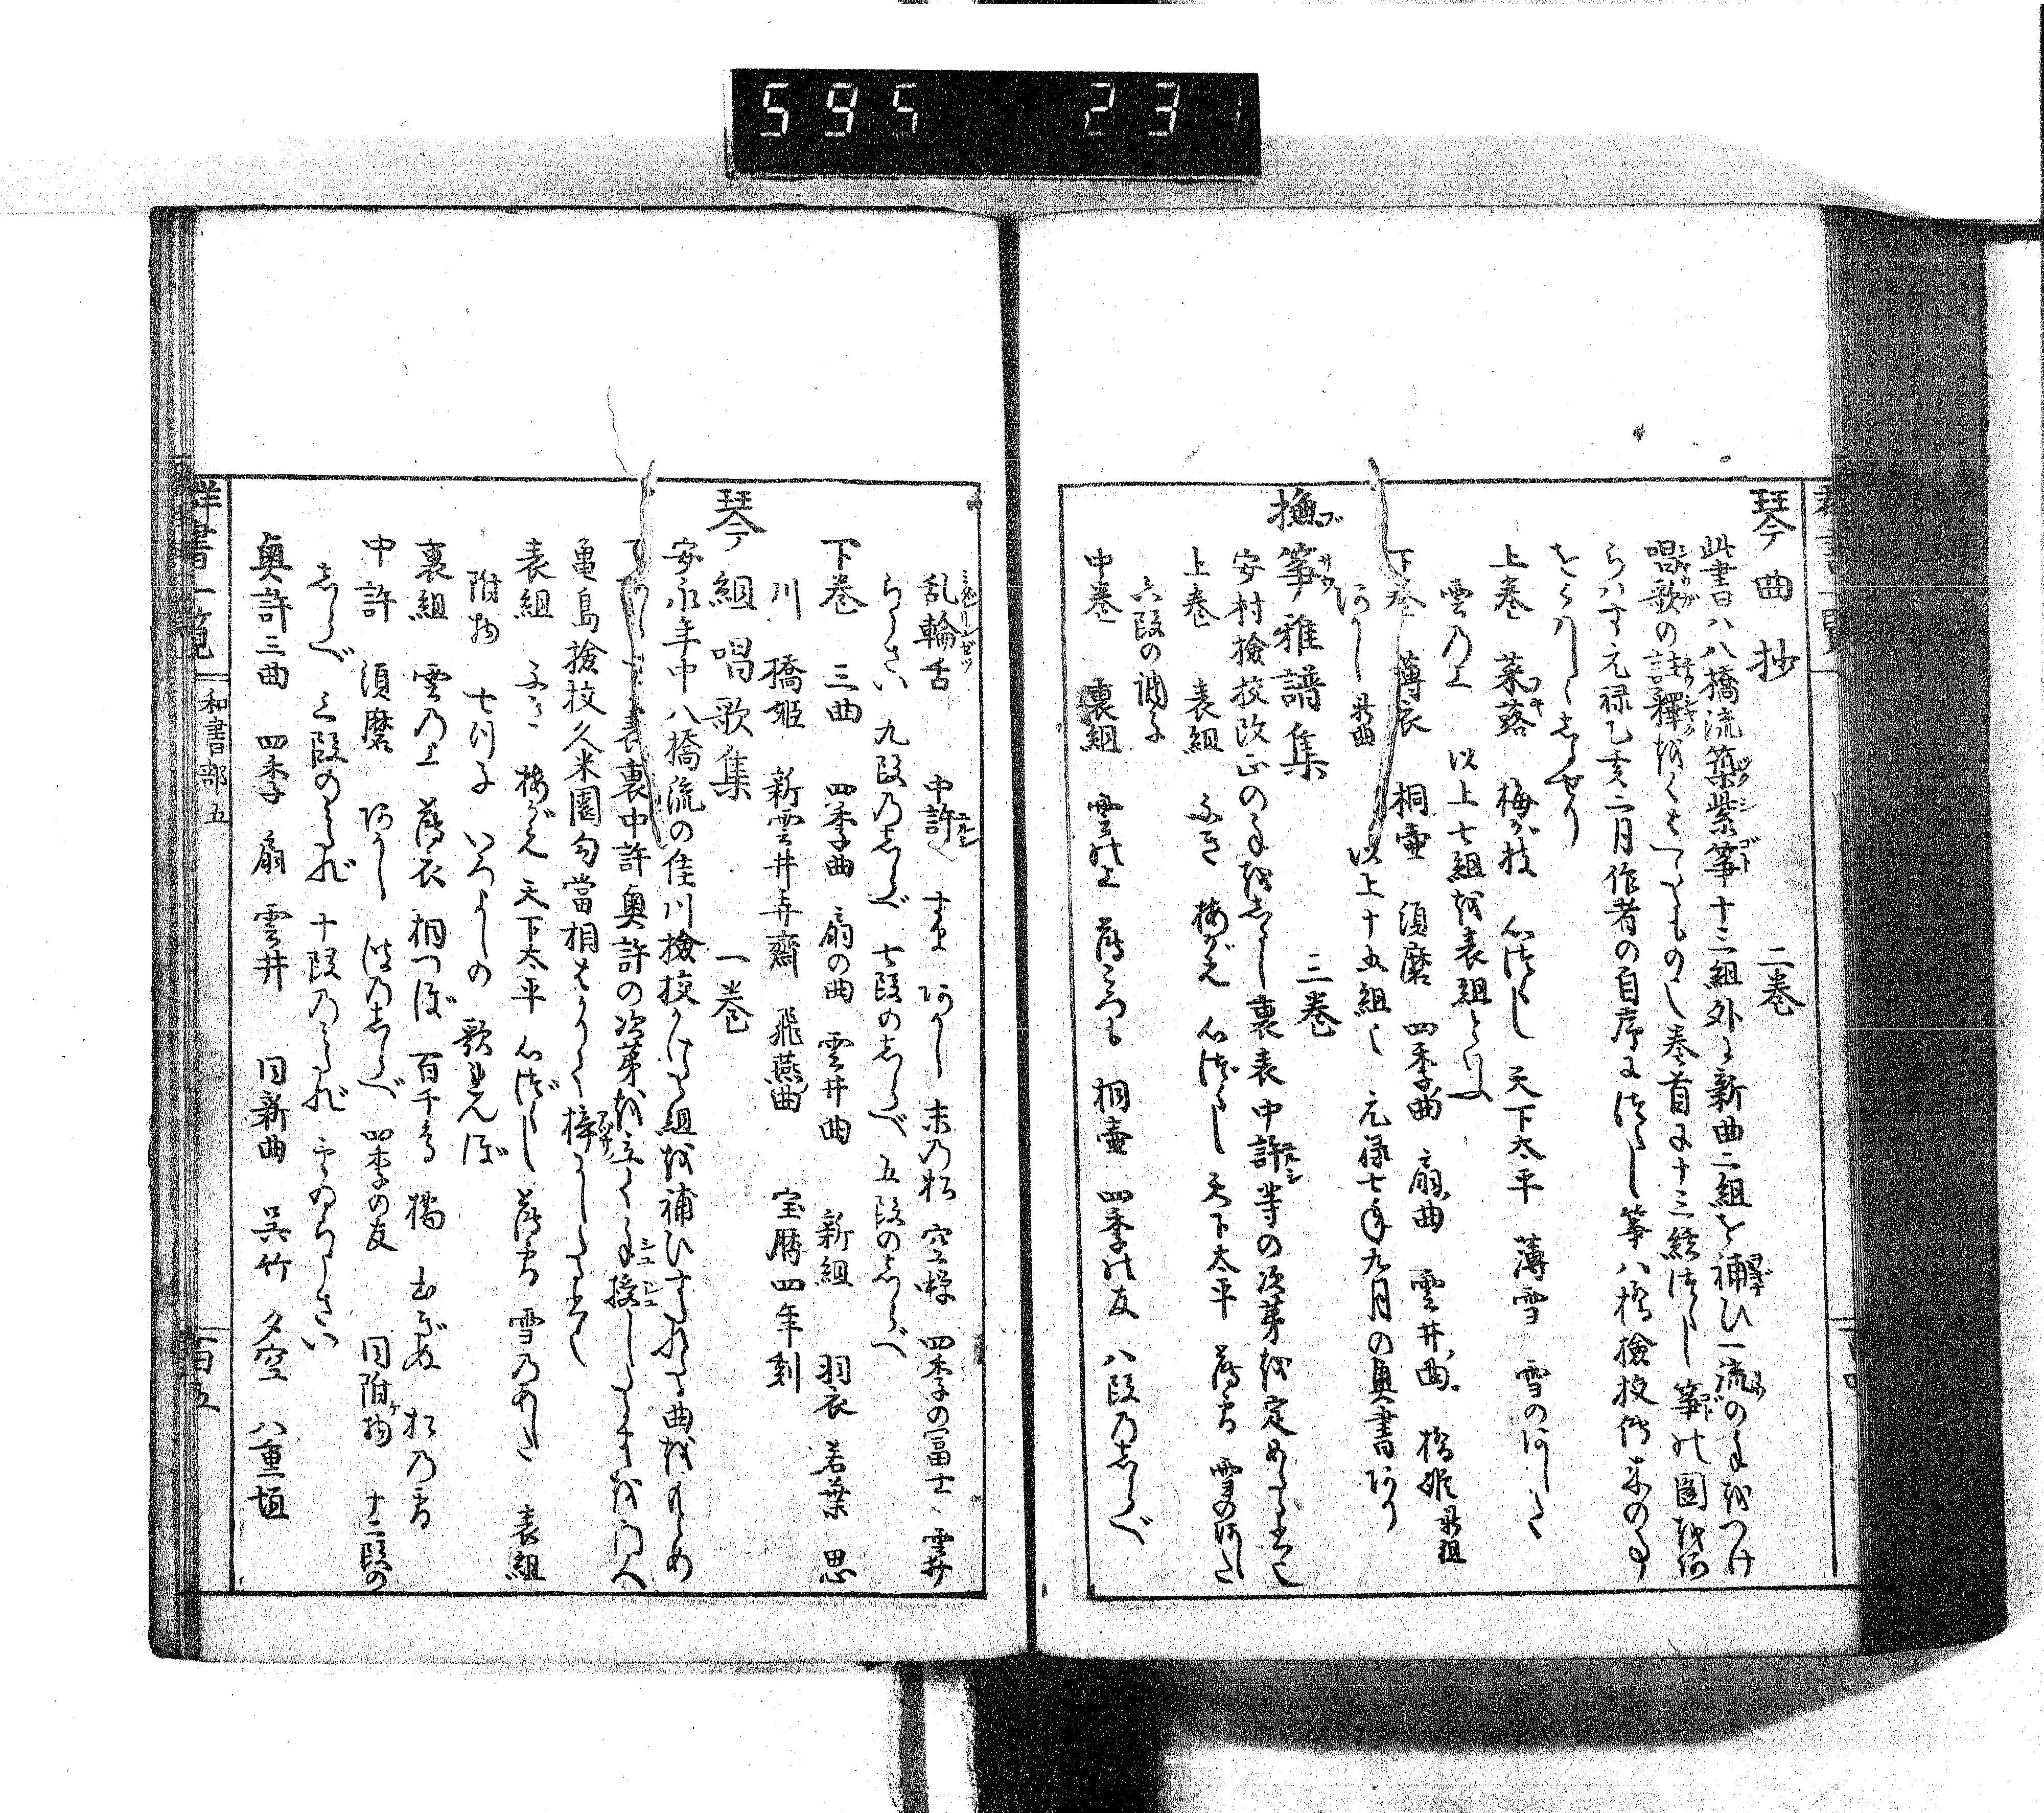 595 231
琴曲抄 二巻
此書ハ八橋流筑紫筝十三組外ニ新曲二組を補ひ一流の手をつけ
唱歌の註釋をくはへたるものし巻首に十三絃つくし筝の圖をあ
らハす元禄乙亥二月作者の自序につくし筝八橋撿挍伝来の事
をくハしくしるせり
上巻 菜蕗 梅が枝 心つくし 天下太平 薄雪 雪のあした
雲の上 以上七組を表組といふ
下巻 薄衣 桐壷 須磨 四季曲 扇曲 雲井曲 橋姫新組
あかし新曲 以上十五組也 元禄七年九月の奥書あり
撫筝雅譜集 三巻
安村撿挍改正の手をしるし裏表中許等の次第を定めたる書也
上巻 表組 ふき 梅がえ 心づくし 天下太平 薄雪 雪のあした
六段の調子
中巻 裏組 雲の上 薄ころも 桐壷 四季の友 八段のしらべ
乱輪舌 中許 すま あかし 末の松 空蝉 四季の冨士 雲井
らうさい 九段のしらべ 七段のしらべ 五段のしらべ
下巻 三曲 四季曲 扇の曲 雲井曲 新組 羽衣 若葉 思
川 橋姫 新雲井弄齋 飛燕曲 宝暦四年刻
琴組唱歌集 一巻
安永年中八橋流の住川撿挍かけたる組を補ひすたれたる曲をもとめ
表裏中許奥許の次第を立く手授したるを門人
亀島撿挍久米圓勾當相はかりく梓にしたる也
表組 ふき 梅がえ 天下太平 心づくし 薄雪 雪のあした 表組
附物 七つ子 いろよしの 歌れんぼ
裏組 雲の上 薄衣 桐つぼ 百千鳥 橘 玉かづら 松の雪
中許 須磨 あかし 法のしらべ 四季の友 同附物 十二段の
しらべ 三段のみだれ 十段のみだれ 雲ゐらうさい
奥許三曲 四季 扇 雲井 同新曲 呉竹 夕空 八重垣
群書一覧 和書部五 百五